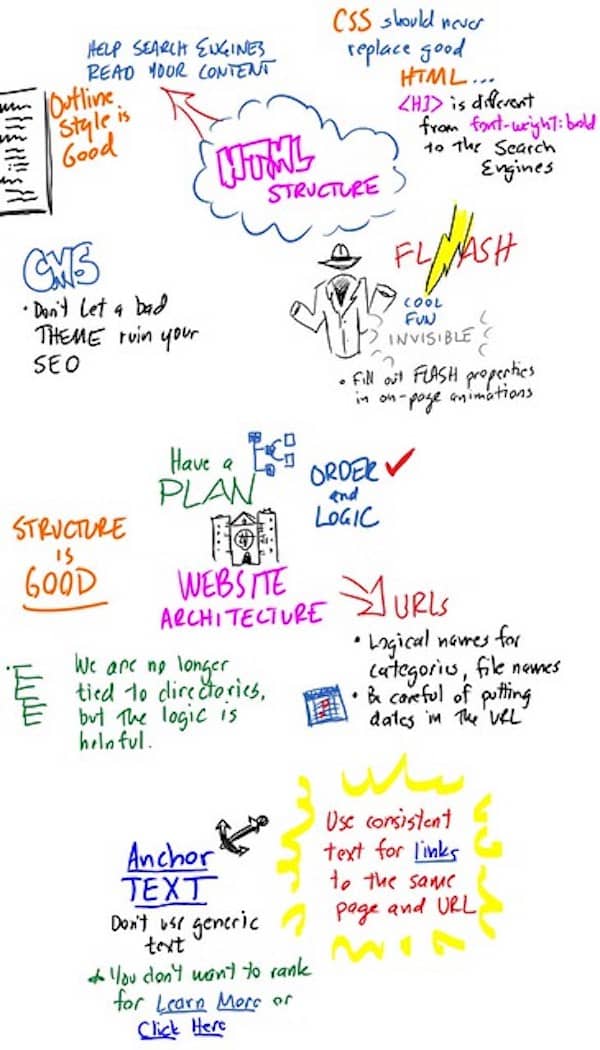 CSS should never
replace good
HTML...
<H3> is different
from font-weight:bold
to the Search
Engines
HELP SEARCH ENGINES
READ YOUR CONTENT
Outline
Style is
Good
HTML
STRUCTURE
CMS
• Don't let a bad
THEME ruin your
SEO
FLASH
COOL
FUN
INVISIBLE
• Fill out FLASH properties
in on-page animations
Have a
PLAN
ORDER
and
LOGIC
STRUCTURE
IS
GOOD
WEBSITE
ARCHITECTURE
URLs
• Logical names for
categories, file names
• Be careful of putting
dates in the URL
We are no longer
tied to directories,
but the logic is
helpful.
Anchor
TEXT
Don't use generic
text
You don't want to rank
for Learn More or
Click Here
Use consistent
text for links
to the same
page and URL